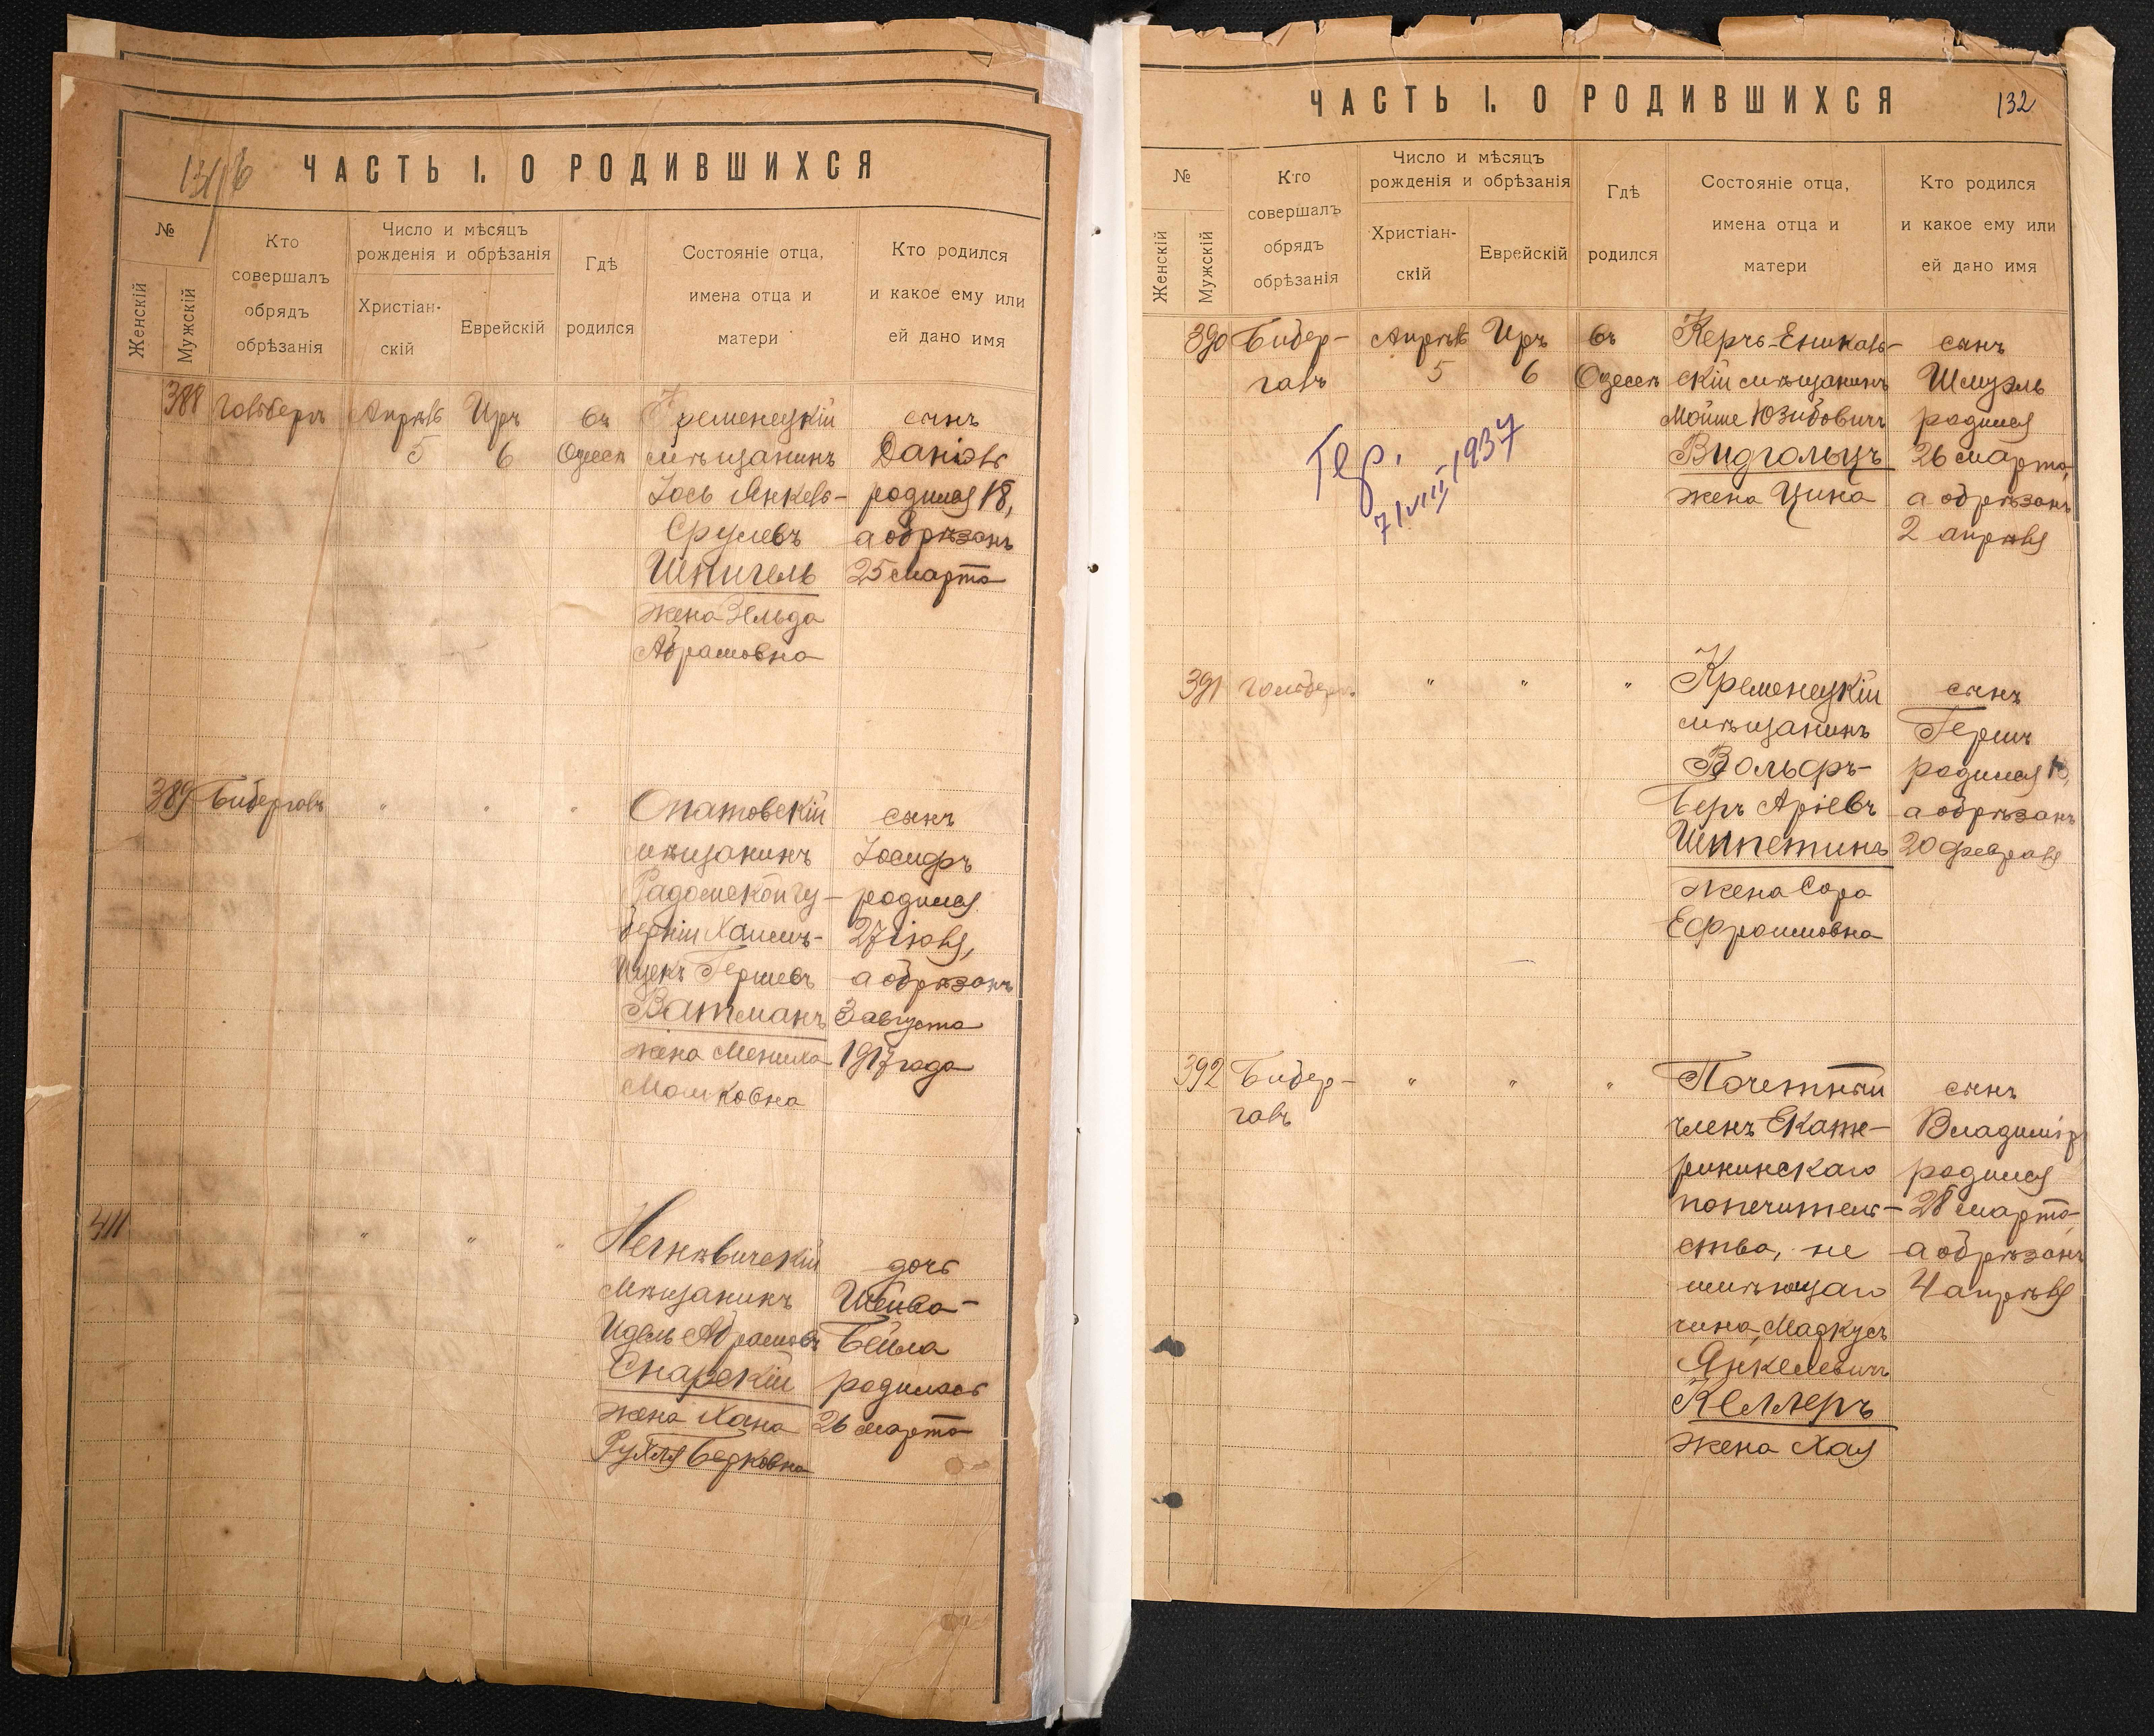 ЧАСТЬ I. О РОДИВШИХСЯ
№
Женскій
Мужскій
Кто
совершалъ
обрядъ
обрѣзанія
Число и мѣсяцъ
рожденія и обрѣзанія
Христіан-
скій
Еврейскій
Гдѣ
родился
Состояніе отца,
имена отца и
матери
Кто родился
и какое ему или
ей дано имя
388 Гольбергъ Апрѣль Иръ въ Кременецкій сынъ
5 6 Одессѣ мѣщанинъ Даніэль
Іось Янкель- родился 18,
Срулевъ а обрѣзанъ
Шпигель 25 марта
жена Зельда
Абрамовна
389 Бибергалъ " " " Опатовскій сынъ
мѣщанинъ Іосифъ
Радомской гу- родился
берніи Хаимъ- 27 іюля,
Ицекъ Гершевъ а обрѣзанъ
Ватманъ 3 августа
жена Мениха 1917 года
Мошковна
411 " " " Негнѣвичскій дочь
мѣщанинъ Шейва-
Идель Абрамовъ Бейла
Снарскій родилась
жена Хана 26 марта
Рухля Берковна
ЧАСТЬ I. О РОДИВШИХСЯ 132
№
Женскій
Мужскій
Кто
совершалъ
обрядъ
обрѣзанія
Число и мѣсяцъ
рожденія и обрѣзанія
Христіан-
скій
Еврейскій
Гдѣ
родился
Состояніе отца,
имена отца и
матери
Кто родился
и какое ему или
ей дано имя
390 Бибер- Апрѣль Иръ въ Керчь-Еникаль- сынъ
галъ 5 6 Одессѣ скій мѣщанинъ Шмуэль
Мойше Юзибовичъ родился
Видгольцъ 26 марта,
жена Цина а обрѣзанъ
2 апрѣля
Гер.
7/VIII 1937
391 Гольбергъ " " " Кременецкій сынъ
мѣщанинъ Гершъ
Вольфъ- родился
Беръ Аріевъ а обрѣзанъ
Шпетинъ 20 февраля
жена Сора
Ефроимовна
392 Бибер- " " " Почетный сынъ
галъ членъ Екате- Владиміръ
рининскаго родился
попечитель- 28 марта,
ства, не а обрѣзанъ
имѣющаго 4 апрѣля
чина, Маркусъ
Янкелевичъ
Келлеръ
жена Хая